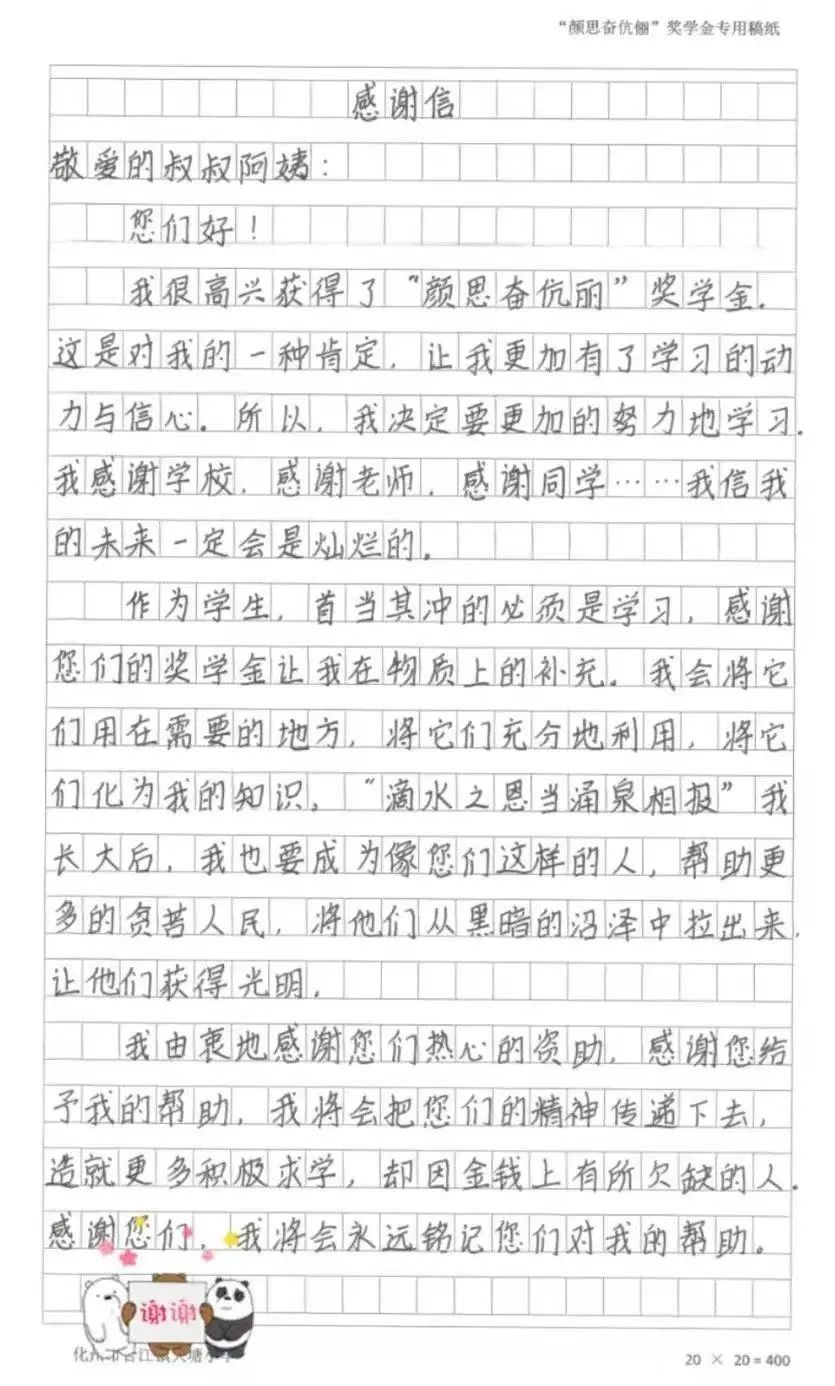 “颜思奋伉俪”奖学金专用稿纸
感谢信
敬爱的叔叔阿姨：
您们好！
我很高兴获得了“颜思奋伉丽”奖学金.
这是对我的一种肯定，让我更加有了学习的动
力与信心。所以，我决定要更加的努力地学习.
我感谢学校，感谢老师，感谢同学……我信我
的未来一定会是灿烂的。
作为学生，首当其冲的必须是学习，感谢
您们的奖学金让我在物质上的补充。我会将它
们用在需要的地方，将它们充分地利用，将它
们化为我的知识。“滴水之恩当涌泉相报”我
长大后，我也要成为像您们这样的人，帮助更
多的贪苦人民，将他们从黑暗的沼泽中拉出来，
让他们获得光明.
我由衷地感谢您们热心的资助，感谢您给
予我的帮助，我将会把您们的精神传递下去，
造就更多积极求学，却因金钱上有所欠缺的人.
感谢您们，我将会永远铭记您们对我的帮助。
谢谢
化州
20 × 20 = 400